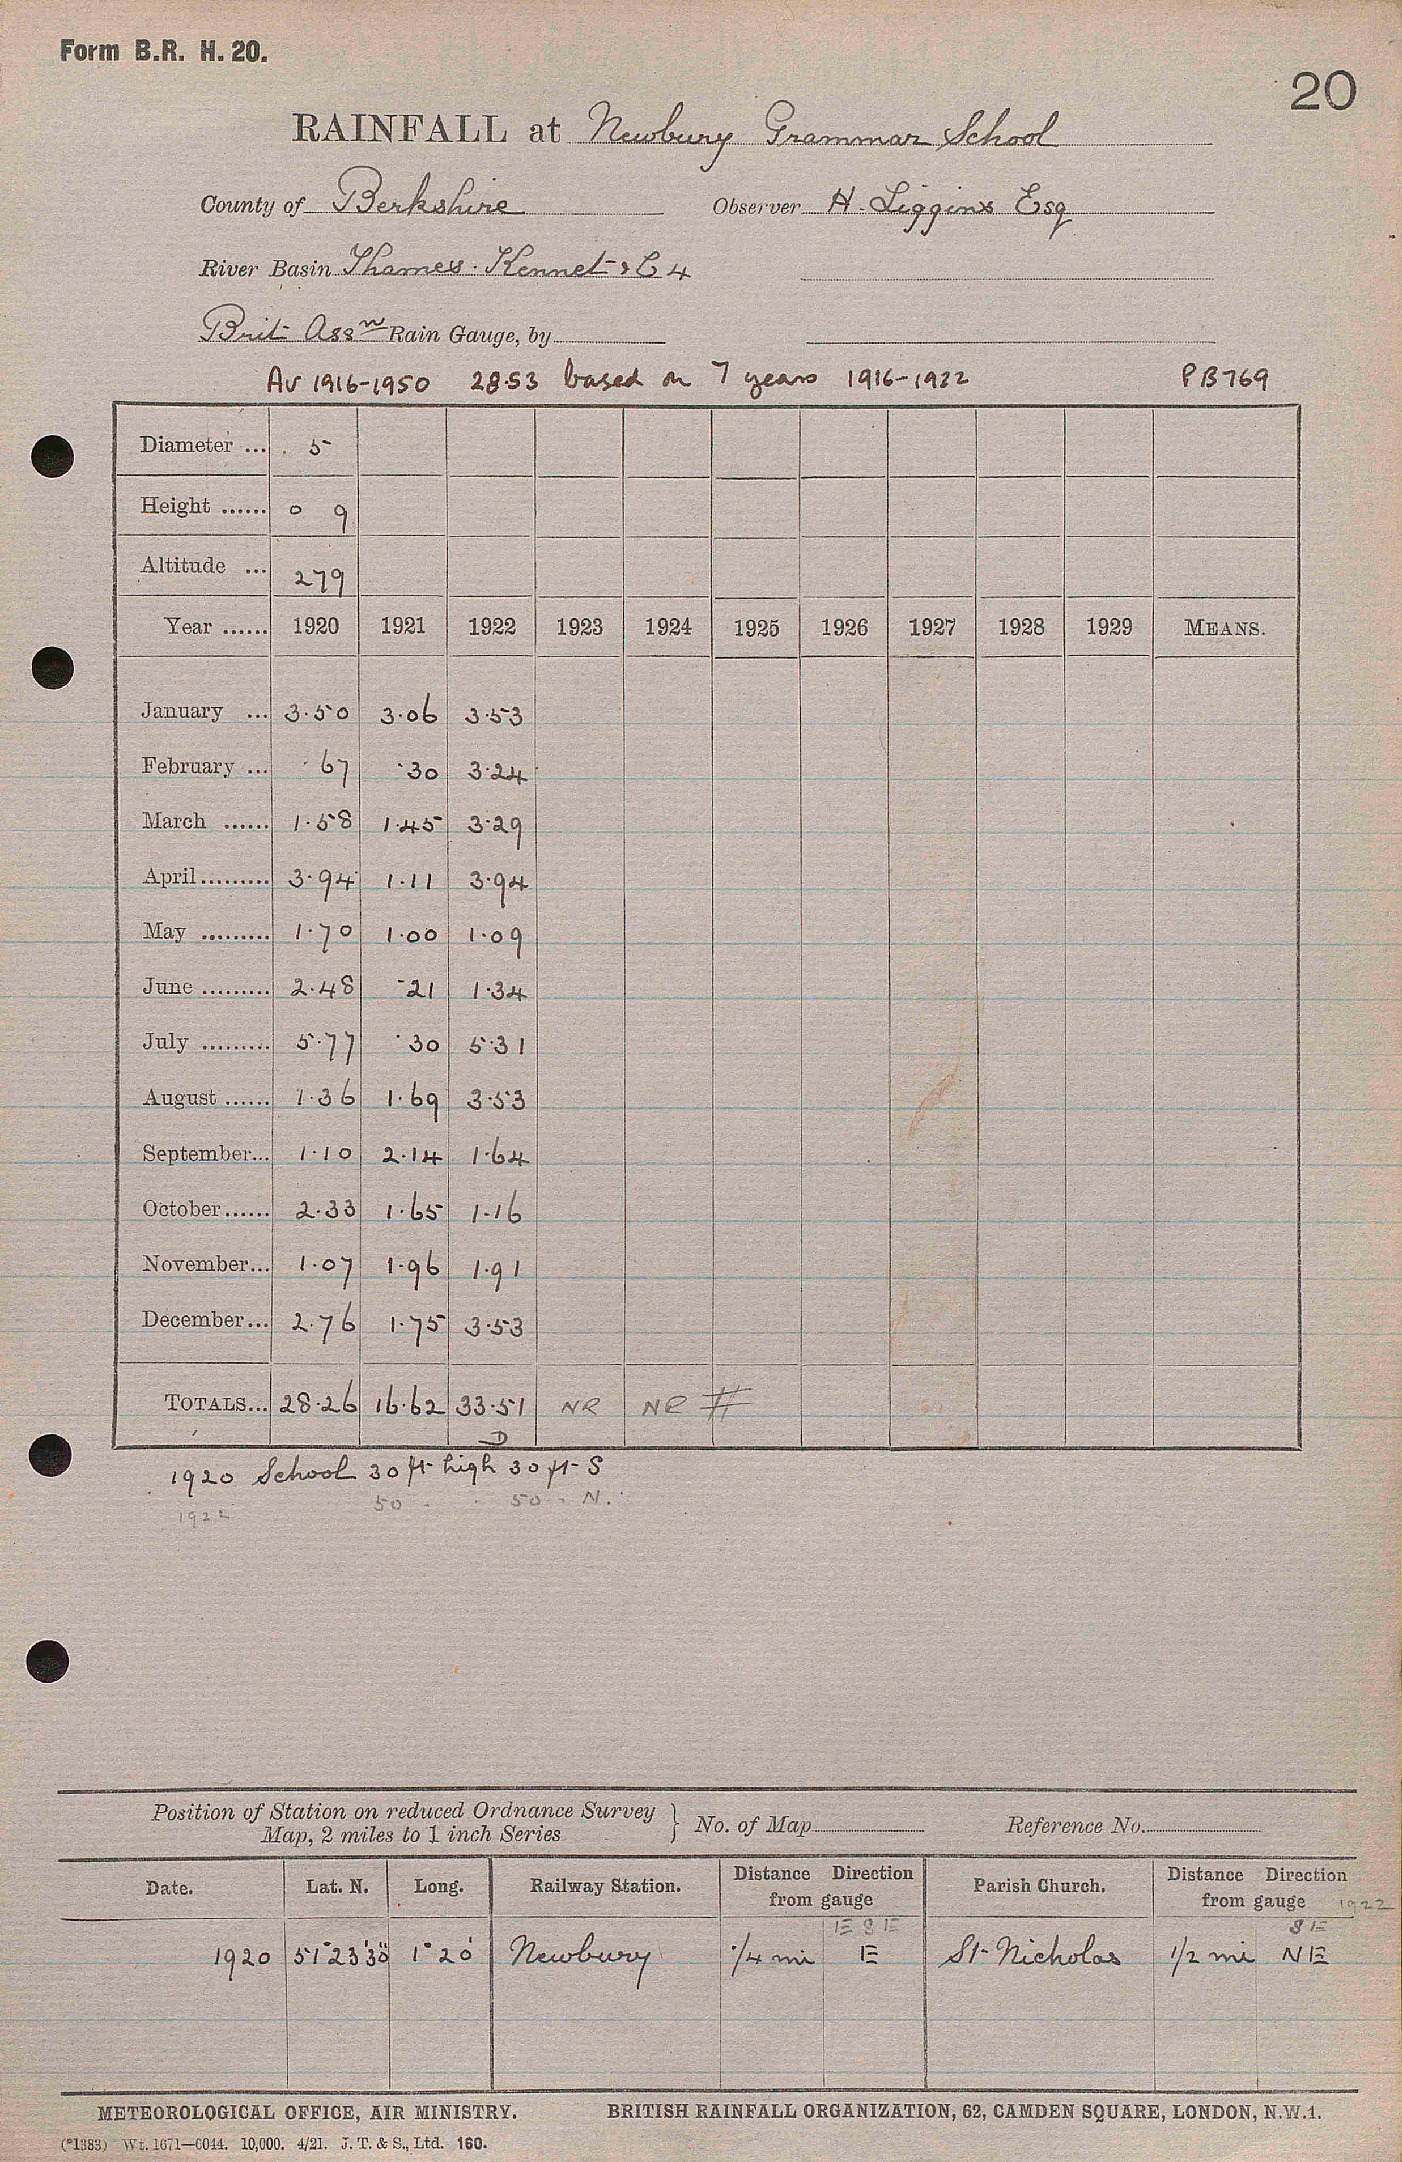 Form B.R. H. 20.
20
RAINFALL at Newbury Grammar School
County of Berkshire Observer H. Liggins Esq
River Basin Thames. Kennet & C 4
Brit Assn Rain Gauge, by
Av 1916-1950 28.53 based on 7 years 1916-1922 PB769
Diameter ... 5
Height ...... 0 9
Altitude ... 279
Year ...... 1920 1921 1922 1923 1924 1925 1926 1927 1928 1929 MEANS.
January ... 3.50 3.06 3.53
February ... .67 .30 3.24
March ...... 1.58 1.45 3.29
April......... 3.94 1.11 3.94
May ......... 1.70 1.00 1.09
June ......... 2.48 .21 1.34
July ......... 5.77 .30 5.31
August ...... 1.36 1.69 3.53
September... 1.10 2.14 1.64
October...... 2.33 1.65 1.16
November... 1.07 1.96 1.91
December... 2.76 1.75 3.53
TOTALS... 28.26 16.62 33.51 NR NR #
D
1920 School 30 ft high 30 ft S
1922 50 . . 50 . N.
Position of Station on reduced Ordnance Survey } No. of Map Reference No.
Map, 2 miles to 1 inch Series
Date. Lat. N. Long. Railway Station. Distance Direction from gauge Parish Church. Distance Direction from gauge 1922
ESE SE
1920 51°23'30" 1°20' Newbury 1/4 mi E St Nicholas 1/2 mi NE
METEOROLOGICAL OFFICE, AIR MINISTRY. BRITISH RAINFALL ORGANIZATION, 62, CAMDEN SQUARE, LONDON, N.W.1.
(*1383) Wt. 1671—6044. 10,000. 4/21. J. T. & S., Ltd. 160.